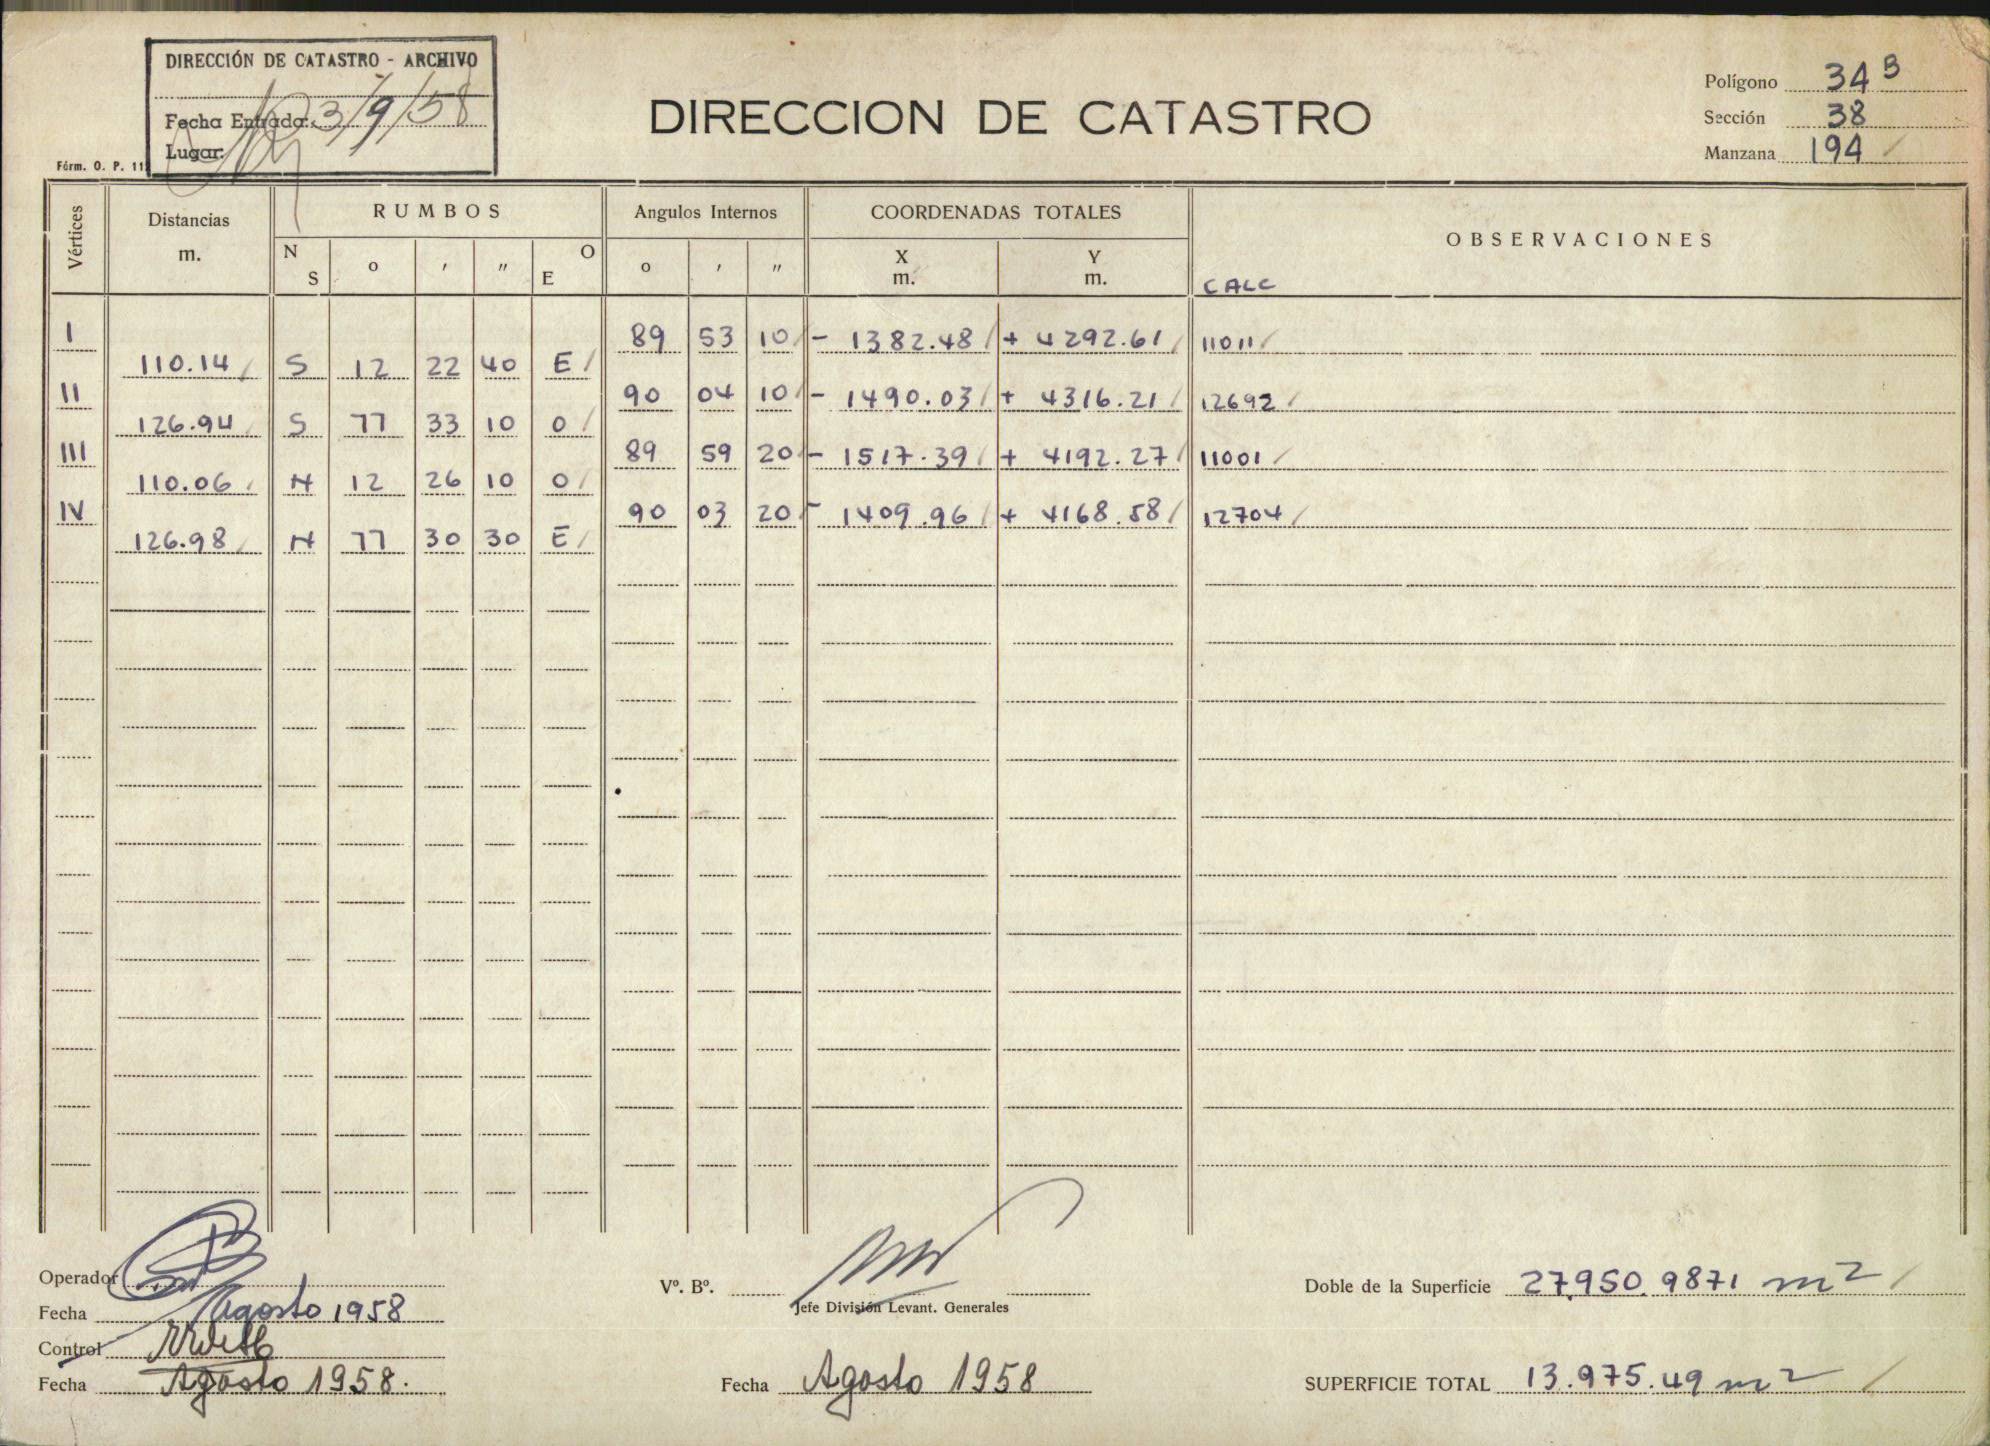 DIRECCIÓN DE CATASTRO - ARCHIVO
Fecha Entrada: 3/9/58
Lugar:
Fórm. O. P. 11
DIRECCION DE CATASTRO
Polígono 34 B
Sección 38
Manzana 194
Vértices Distancias m. RUMBOS Angulos Internos COORDENADAS TOTALES OBSERVACIONES
N S o ' " O E o ' " X m. Y m. CALC
I 89 53 10 - 1382.48 + 4292.61 11011
110.14 S 12 22 40 E
II 90 04 10 - 1490.03 + 4316.21 12692
126.94 S 77 33 10 O
III 89 59 20 - 1517.39 + 4192.27 11001
110.06 N 12 26 10 O
IV 90 03 20 - 1409.96 + 4168.58 12704
126.98 N 77 30 30 E
Operador
Fecha Agosto 1958
Control
Fecha Agosto 1958.
Vº. Bº.
Jefe División Levant. Generales
Fecha Agosto 1958
Doble de la Superficie 27.950.9871 m2
SUPERFICIE TOTAL 13.975.49 m2